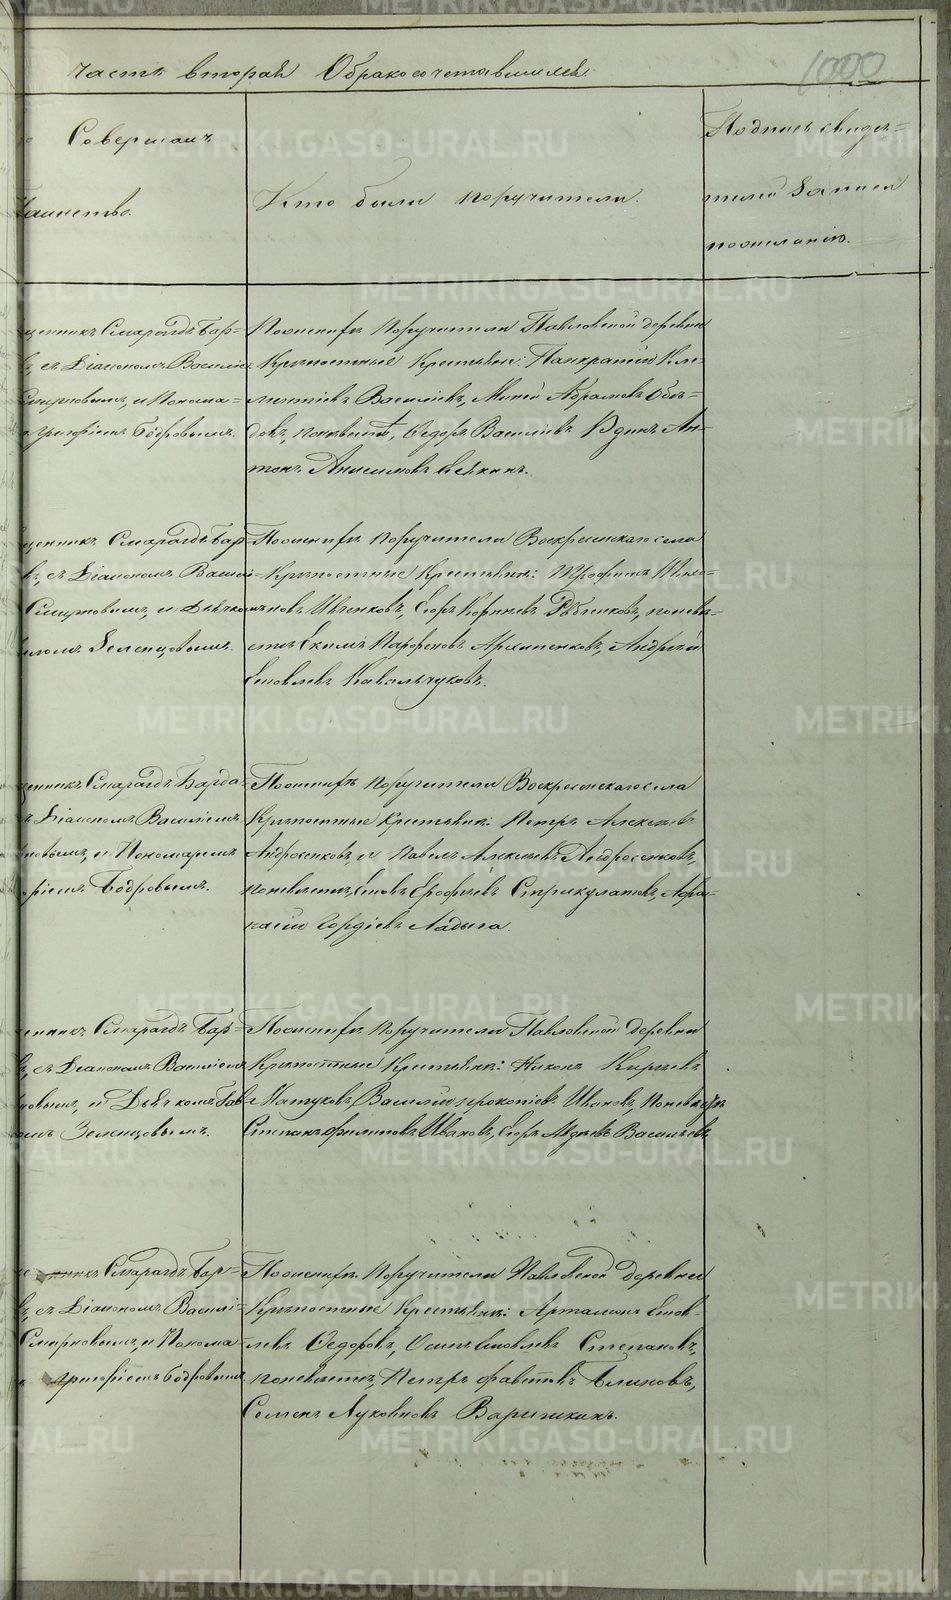 Часть вторая Обракосочетавшихся.
1000
Совершалъ
Таинство.
Кто были поручители.
Подпись свидѣ=
телей записи
пожеланію.
щенникъ Смарагдъ Бар=
съ Діакономъ Василіе
Смирновымъ, и Понома=
Григоріемъ Бодровымъ.
Поженихѣ Поручители Павловской деревни
Крѣпостные Крестьяне: Панкратій Кле=
ментіевъ Василіевъ, Миней Абрамовъ
Федоръ Василіевъ Ан=
тонъ Анисимовъ
щенникъ Смарагдъ Бар=
съ Діакономъ Васил
Смирновымъ, и Дьячко
иломъ Зеленцовымъ.
Поженихѣ Поручители Воскресенскаго села
Крѣпостные Крестьяне: Трофимъ
Егоръ Корнѣевъ Рябченковъ, поневѣ=
стѣ Екимъ Парфеновъ Архипенковъ, Андрей
Яковлевъ Ковальчуковъ.
щенникъ Смарагдъ Багда=
съ Діакономъ Василіемъ
новымъ, и Пономаремъ
ріемъ Бодровымъ.
Поженихѣ Поручители Воскресенскаго села
Крѣпостные Крестьяне: Петръ Алексѣевъ
Андросенковъ, и Павелъ Алексѣевъ Андросенковъ,
поневѣстѣ, Яковъ Ерофѣевъ Стрикулатовъ, Афа=
насій Гордѣевъ Ладыга.
щенникъ Смарагдъ Бар=
въ, съ Діакономъ Василіем
новымъ, и Дьячкомъ Гав
ломъ Зеленцовымъ.
Поженихѣ Поручители Павловской деревни
Крѣпостные Крестьяне: Никонъ Кирѣевъ
Матуковъ, Василій Прокопіевъ Ивановъ, Поневѣстѣ
Степанъ Филиповъ Ивановъ, Егоръ Авдѣевъ Васильевъ
щенникъ Смарагдъ Бар=
въ, съ Діакономъ Васил
Смирновымъ, и Понома
Григоріемъ Бодровымъ
Поженихѣ Поручители Павловской Деревни
Крѣпостные Крестьяне: Артамонъ Яков=
левъ Федоровъ, Осипъ Яковлевъ Степановъ,
поневѣстѣ, Петръ Фавстовъ Блиновъ,
Семенъ Луковновъ Варишкинъ.
METRIKI.GASO-URAL.RU